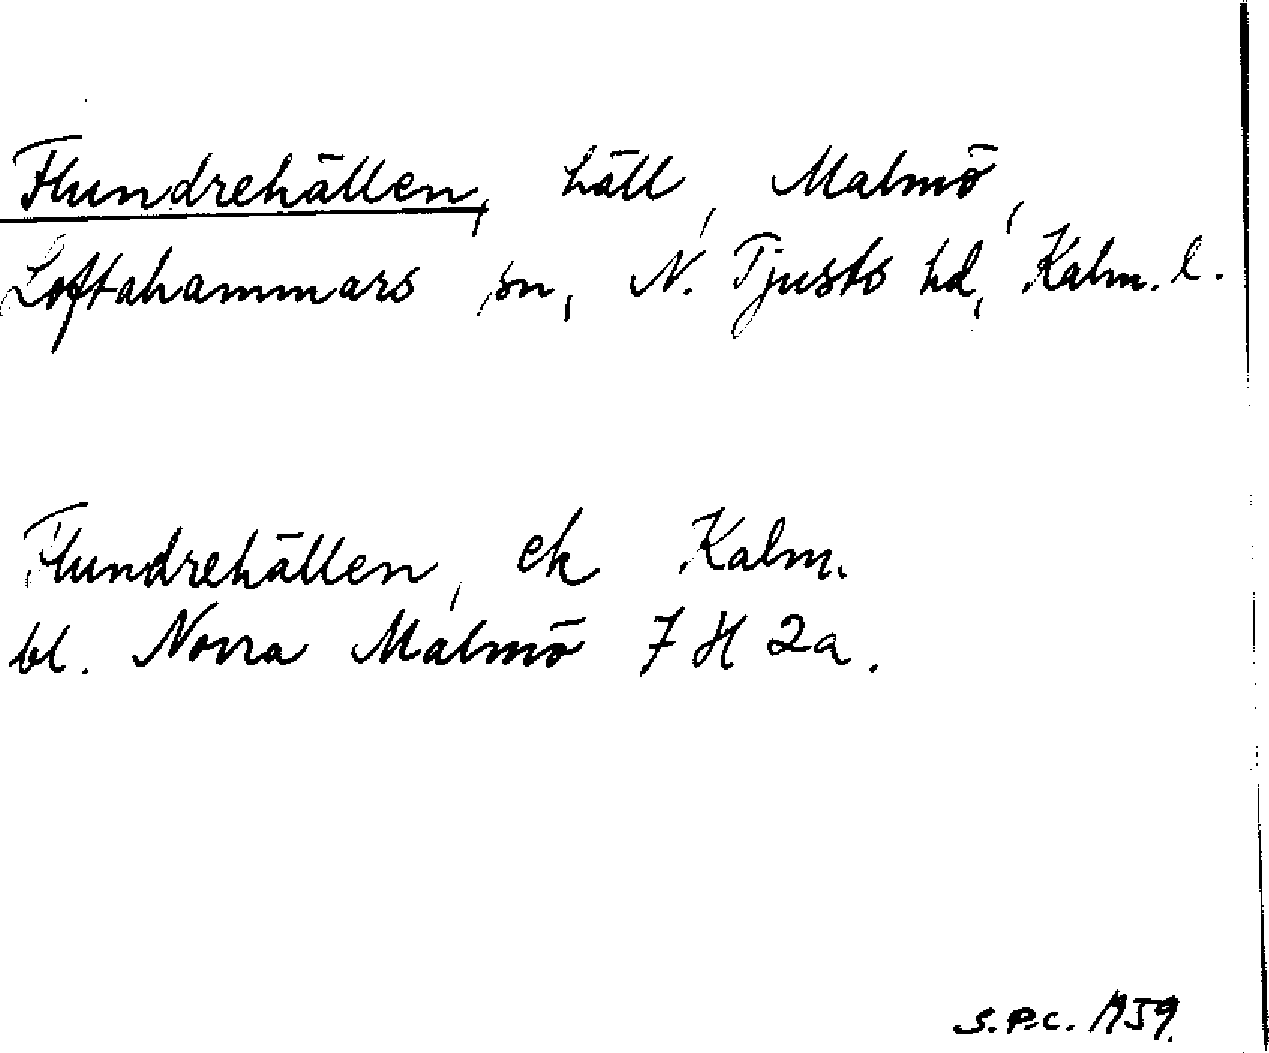 Flundrehällen, häll, Malmö,
Loftahammars sn, N. Tjusts hd, Kalm. l.
Flundrehällen, ek Kalm.
bl. Norra Malmö 7 H 2a.
S.P.C. 1959.